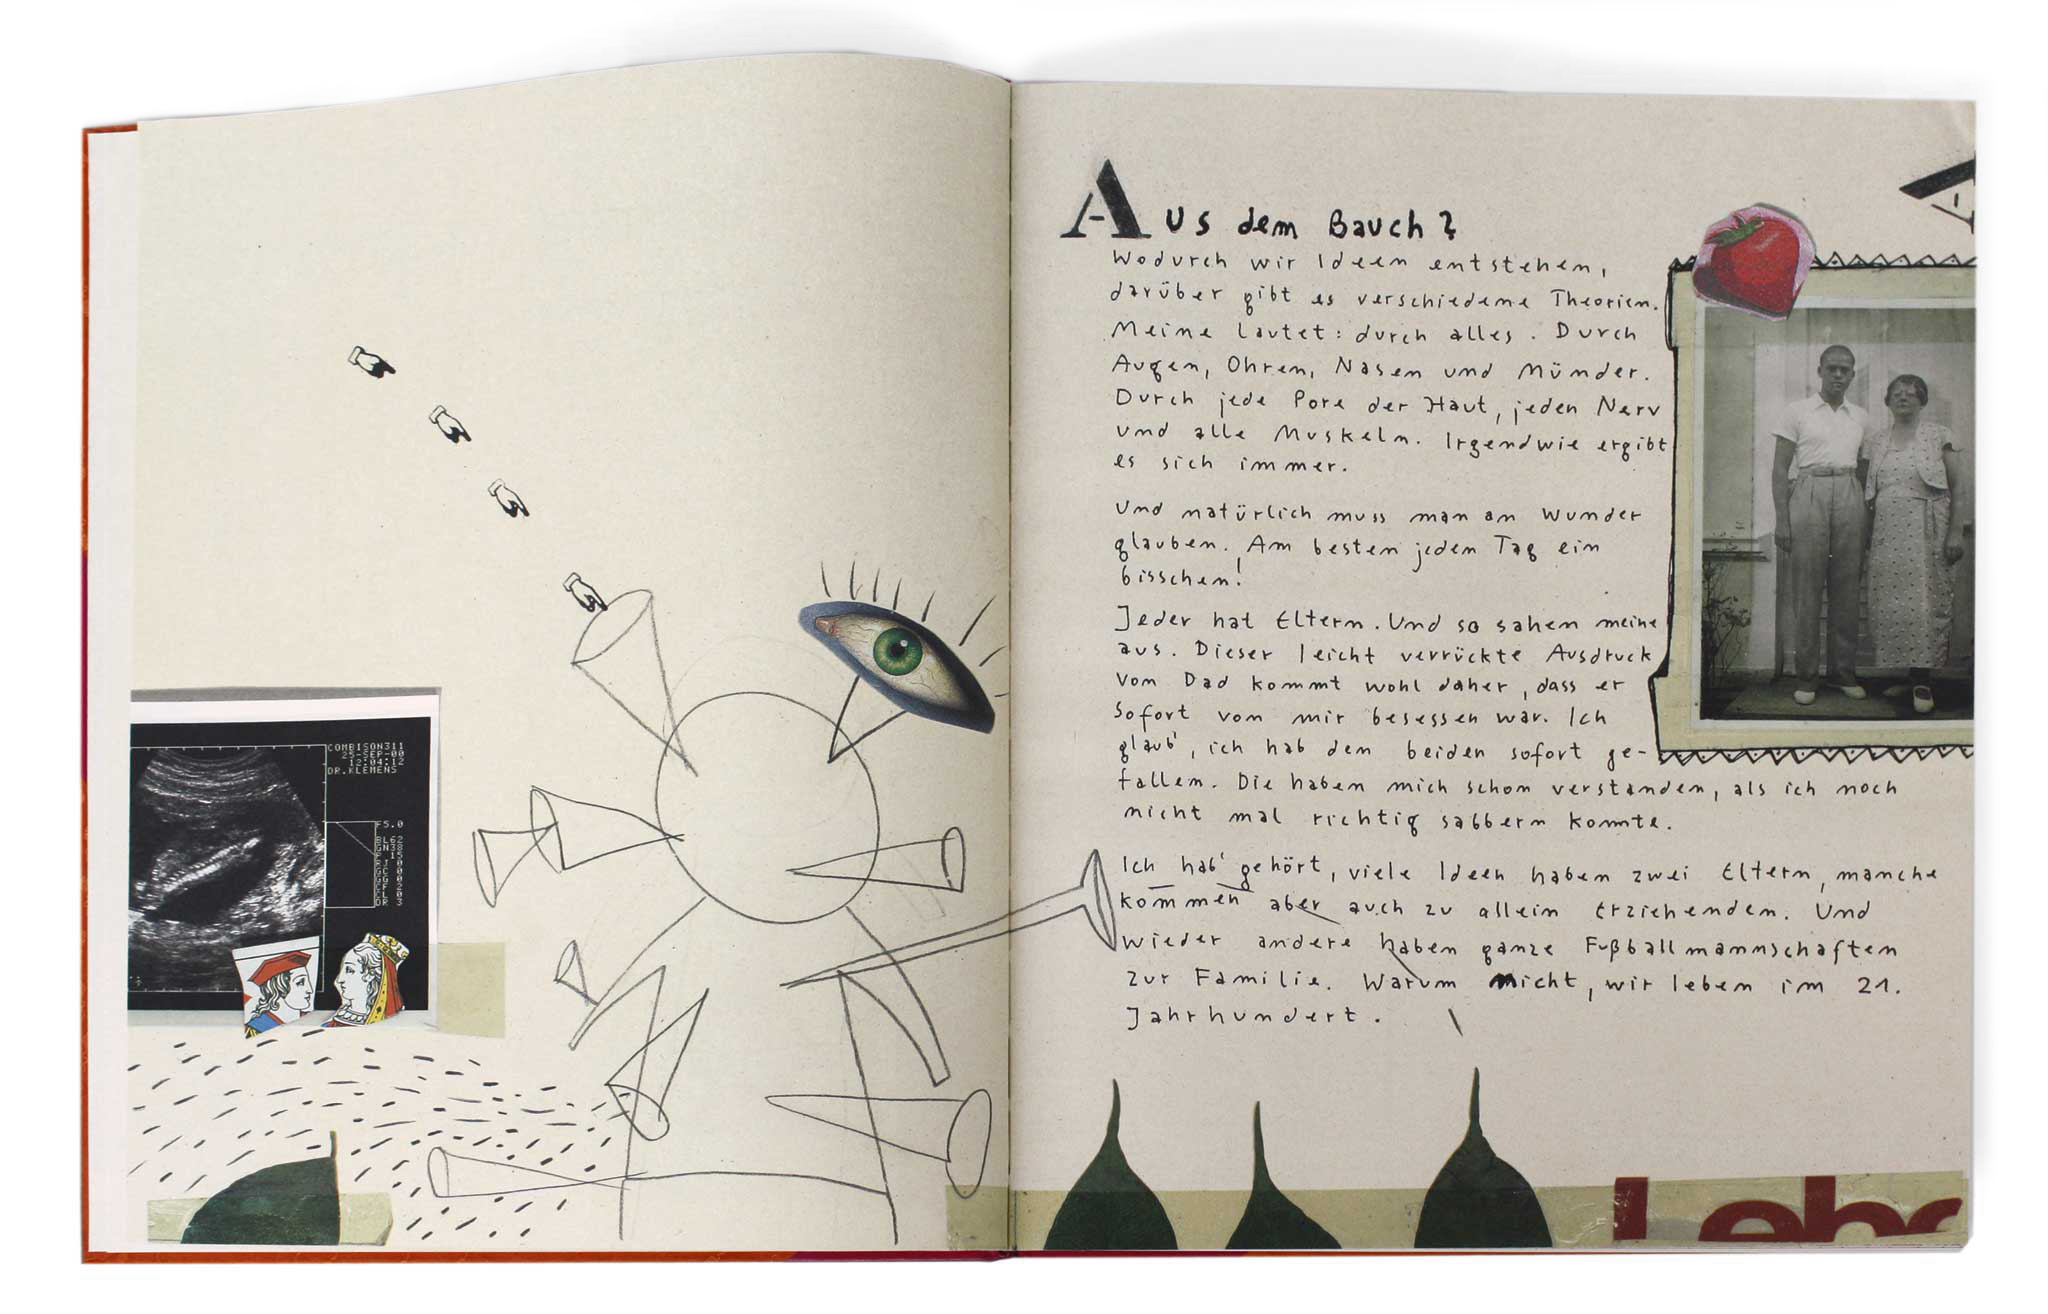 COMBISON311
25-SEP-00
12:04:12
DR.KLEMENS
F5.0
BL62
GN38
P 15
RJ 0
GC 0
GG 0
CF 2
CL 0
DR 3
Aus dem Bauch?
Wodurch wir Ideen entstehen,
darüber gibt es verschiedene Theorien.
Meine lautet: durch alles. Durch
Augen, Ohren, Nasen und Münder.
Durch jede Pore der Haut, jeden Nerv
und alle Muskeln. Irgendwie ergibt
es sich immer.
Und natürlich muss man an Wunder
glauben. Am besten jeden Tag ein
bisschen!
Jeder hat Eltern. Und so sahen meine
aus. Dieser leicht verrückte Ausdruck
von Dad kommt wohl daher, dass er
sofort von mir besessen war. Ich
glaub', ich hab den beiden sofort ge-
fallen. Die haben mich schon verstanden, als ich noch
nicht mal richtig sabbern konnte.
Ich hab' gehört, viele Ideen haben zwei Eltern, manche
kommen aber auch zu allein Erziehenden. Und
wieder andere haben ganze Fußballmannschaften
zur Familie. Warum nicht, wir leben im 21.
Jahrhundert.